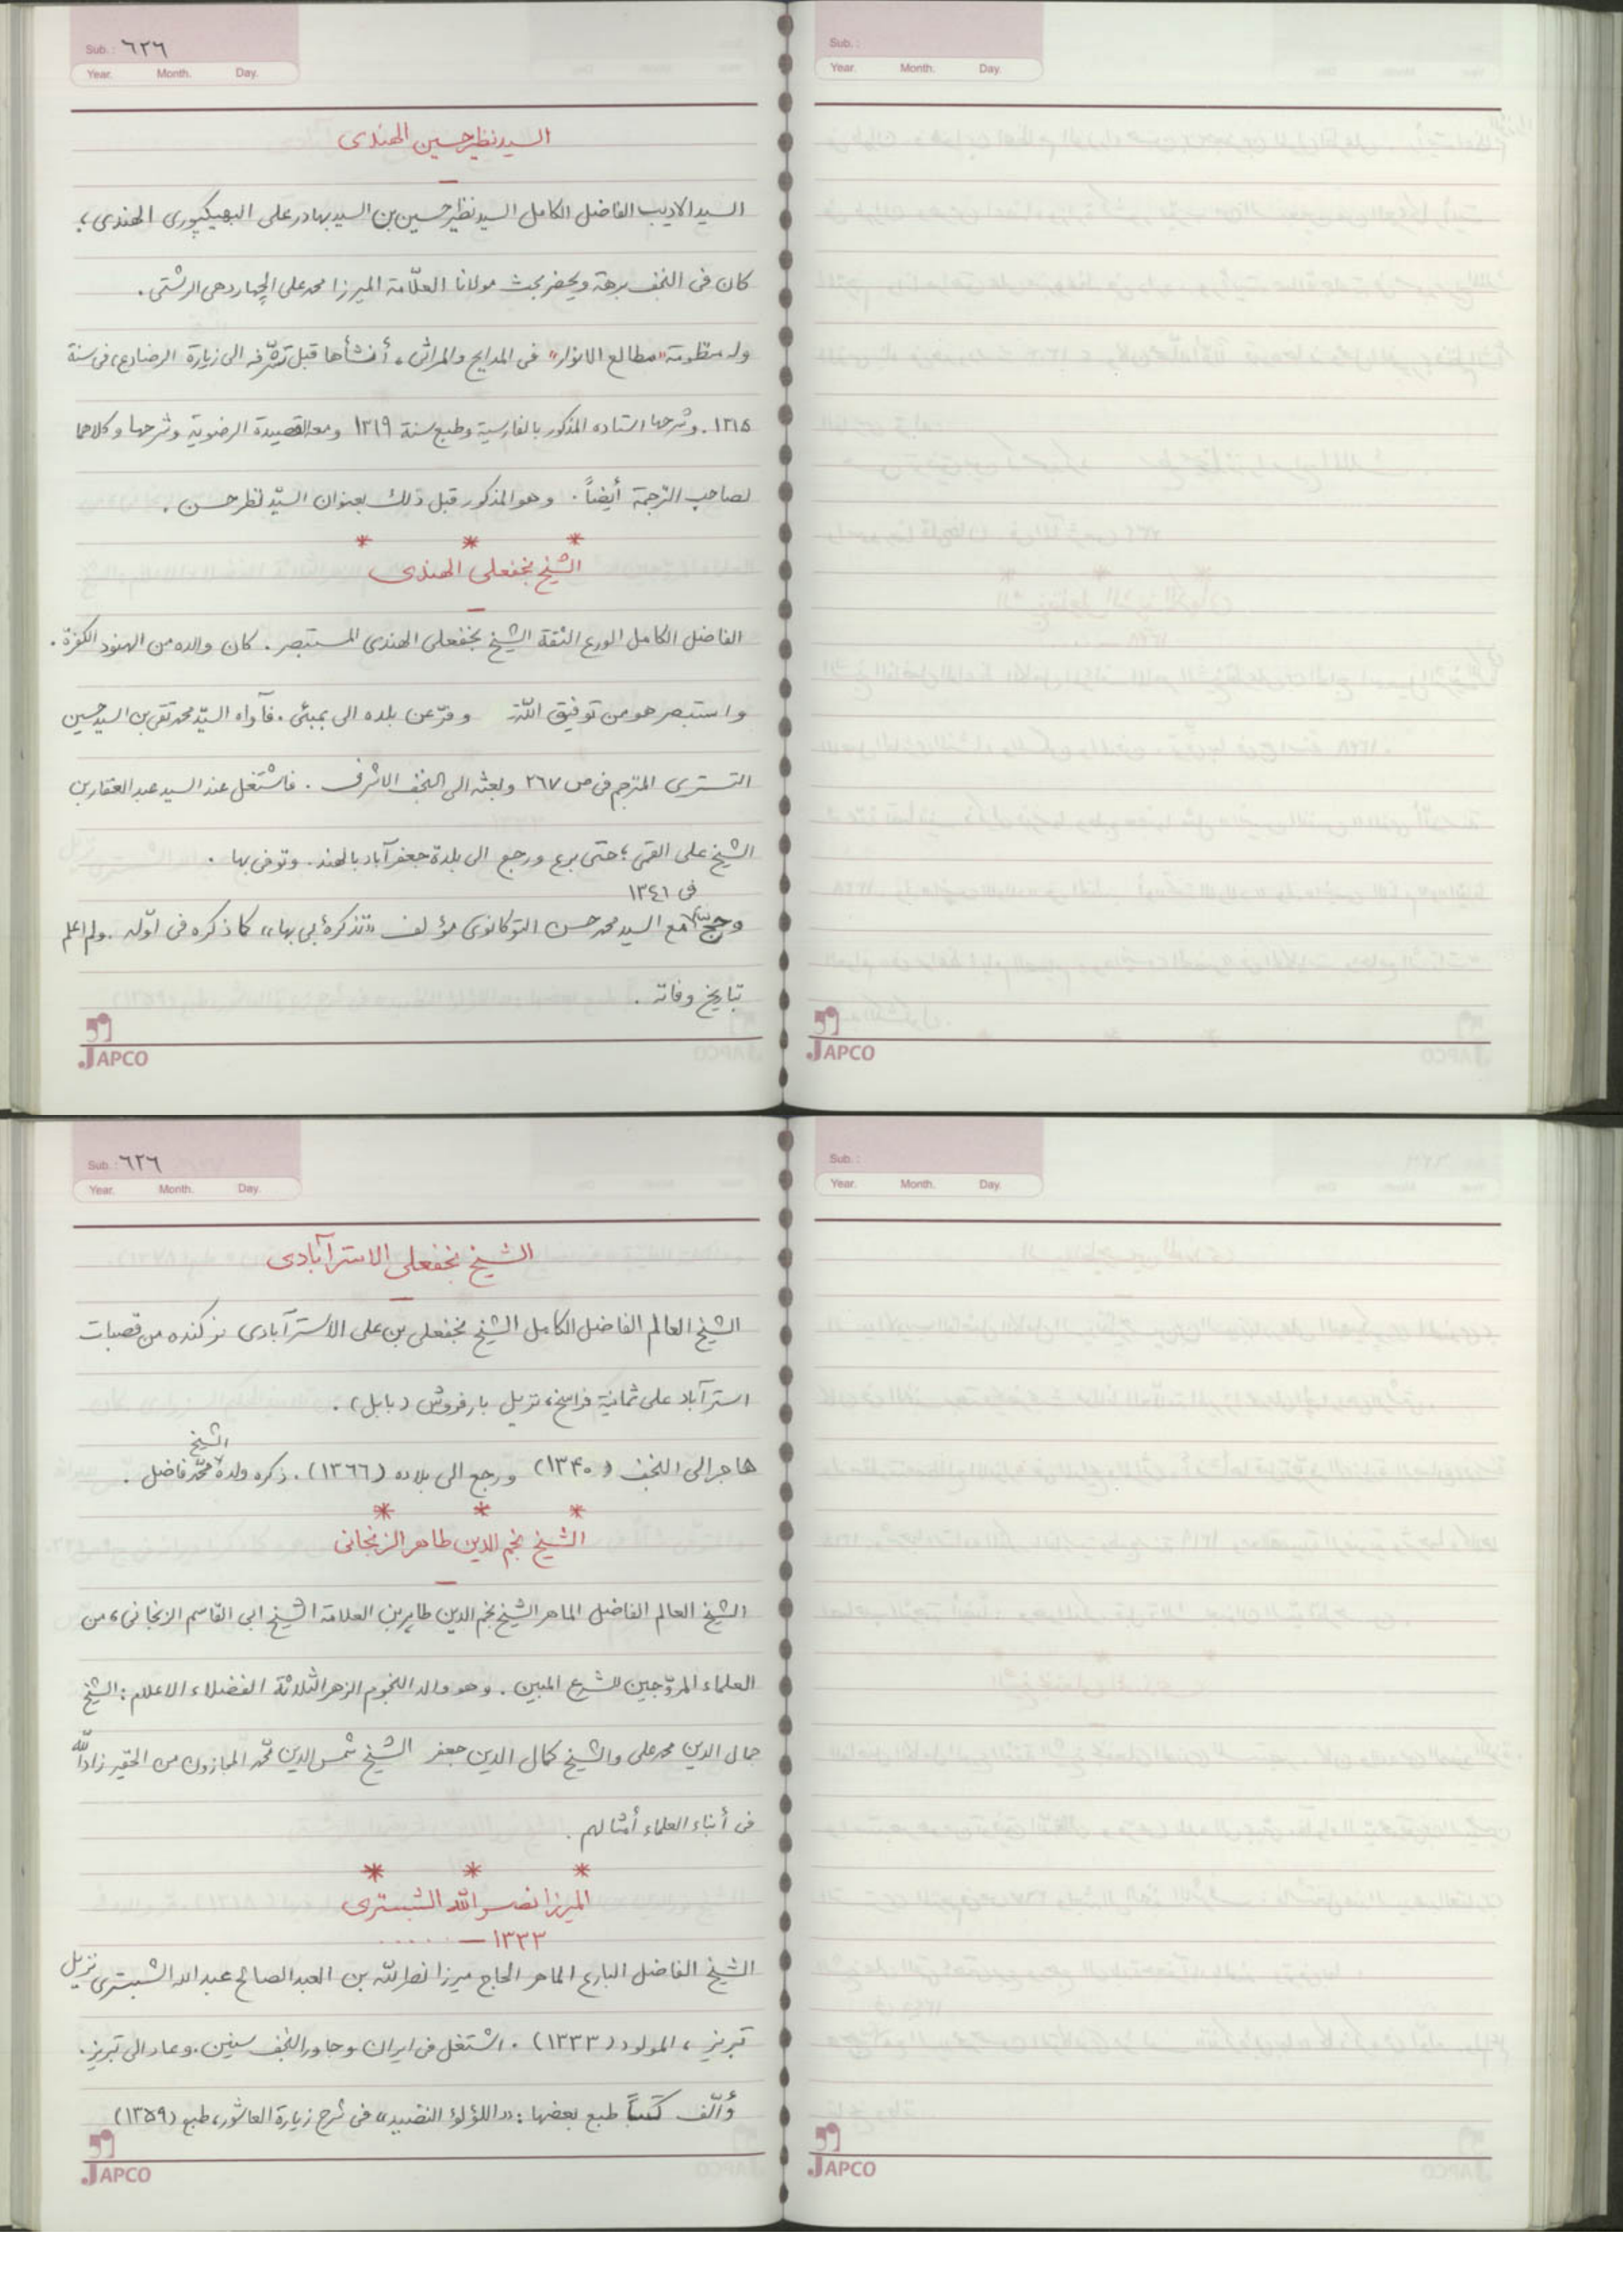 Sub. : ٦٢٦
Year. Month. Day.
السيد نظير حسين الهندى
السيد الاديب الفاضل الكامل السيد نظير حسين بن السيد بهادر على البهيكپورى الهندى ؛
كان فى النجف برهة ويحضر بحث مولانا العلّامة الميرزا محمد على الچهاردهى الرشتى .
وله منظومة "مطالع الانوار" فى المدايح والمراثى ، أنشأها قبل تشرّفه الى زيارة الرضا(ع) فى سنة
١٢١٥ . وشرحها استاده المذكور بالفارسية وطبع سنة ١٢١٩ ومعه القصيدة الرضوية وشرحها وكلاهما
لصاحب الترجمة أيضاً . وهو المذكور قبل ذلك بعنوان السيّد نظر حسن .
* * *
الشيخ نجفعلى الهندى
الفاضل الكامل الورع الثقة الشيخ نجفعلى الهندى المستبصر . كان والده من الهنود الكفرة .
واستبصر هو من توفيق اللّه وفرّ عن بلده الى بمبئى . فآواه السيّد محمد تقى بن السيد حسين
التسترى المترجم فى ص ٢٦٧ وبعثه الى النجف الاشرف . فاشتغل عند السيد عبد الغفار بن
الشيخ على القمى ؛ حتى برع ورجع الى بلدة جعفرآباد بالهند . وتوفى بها .
فى ١٣٤١
وحج مع السيد محمد حسن التوكانوى مؤلف «تذكرۀ بى بها» كما ذكره فى اوّله . ولم اعلم
تاريخ وفاته .
JAPCO
Sub. :
Year. Month. Day.
JAPCO
Sub. : ٦٢٦
Year. Month. Day.
الشيخ نجفعلى الاسترآبادى
الشيخ العالم الفاضل الكامل الشيخ نجفعلى بن على الاسترآبادى نوكنده من قصبات
استرآباد على ثمانية فراسخ ، نزيل بارفروش (بابل) .
هاجر الى النجف (١٣۴٠) ورجع الى بلاده (١٣٦٦) . ذكره ولده الشيخ محمّد فاضل .
* * *
الشيخ نجم الدين طاهر الزنجانى
الشيخ العالم الفاضل الماهر الشيخ نجم الدين طاهر بن العلامة الشيخ ابى القاسم الزنجانى ، من
العلماء المروّجين للشرع المبين . وهو والد النجوم الزهر الثلاثة الفضلاء الاعلام : الشيخ
جمال الدين محمد على والشيخ كمال الدين جعفر الشيخ شمس الدين محمّد المجازون من الحقير زاد اللّه
فى أبناء العلماء أمثالهم .
* * *
الميرزا نصر اللّه الشبسترى
١٣٣٣ — . . . . .
الشيخ الفاضل البارع الماهر الحاج ميرزا نصر اللّه بن العبد الصالح عبد الله الشبسترى نزيل
تبريز ، المولود (١٣٣٣) . اشتغل فى ايران وجاور النجف سنين . وعاد الى تبريز .
وألّف كتباً طبع بعضها : «اللؤلؤ النضيد» فى شرح زيارة العاشور ، طبع (١٣۵٩)
JAPCO
Sub. :
Year. Month. Day.
JAPCO